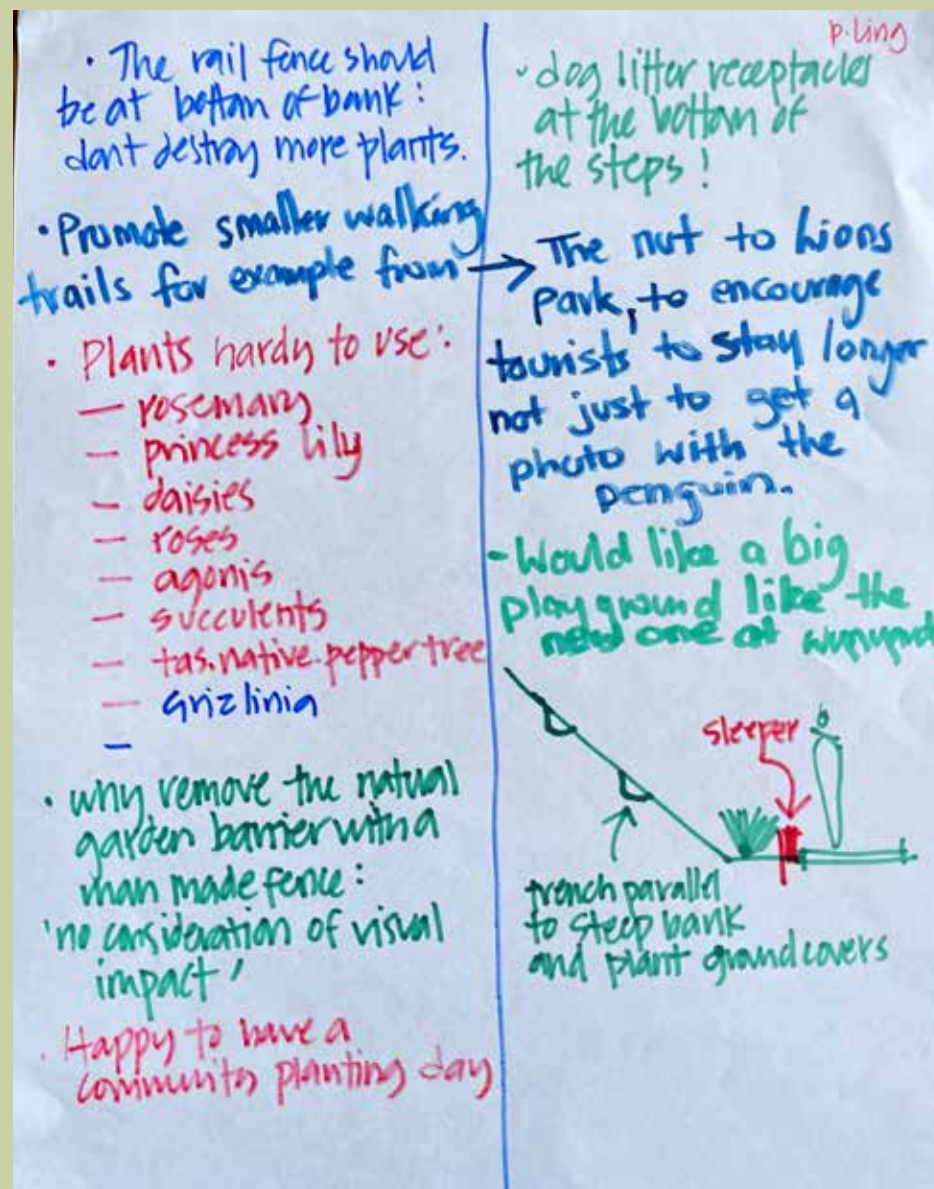 · The rail fence should
be at bottom of bank :
dont destroy more plants.
· Promote smaller walking
trails for example from →
· Plants hardy to use :
— rosemary
— princess lily
— daisies
— roses
— agonis
— succulents
— tas. native. pepper tree
— Grizlinia
—
· why remove the natural
garden barrier with a
man made fence :
'no consideration of visual
impact'
· Happy to have a
community planting day
p. Ling
· dog litter receptacles
at the bottom of
the steps !
The nut to Lions
Park, to encourage
tourists to stay longer
not just to get a
photo with the
penguin.
- Would like a big
play ground like the
new one at
sleeper
trench parallel
to steep bank
and plant ground covers